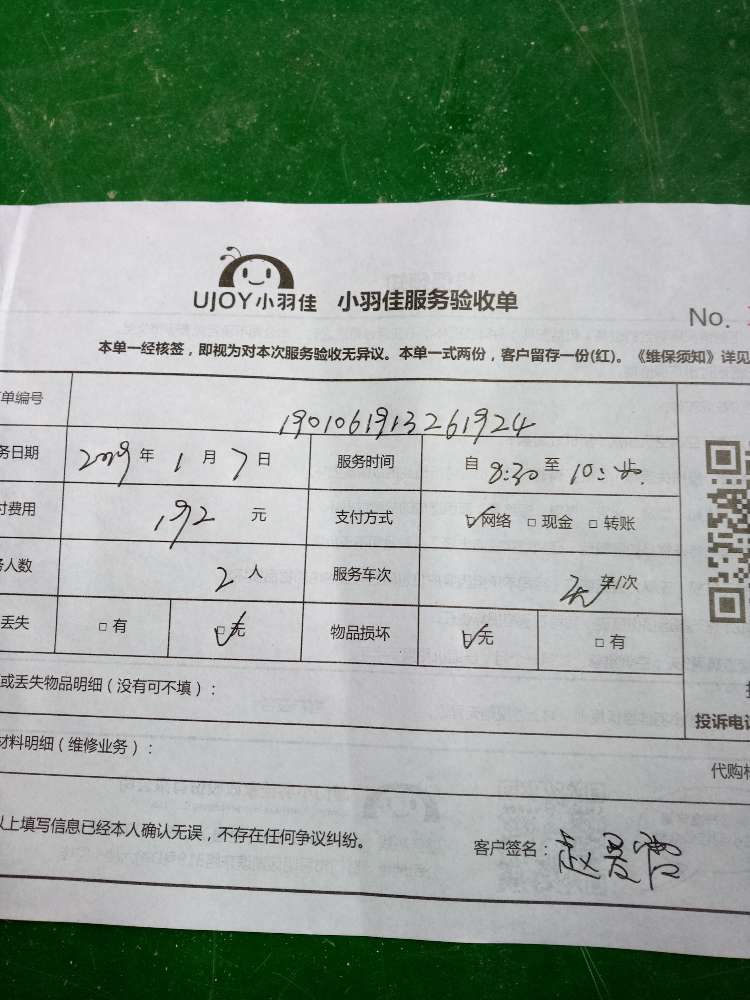 UJOY小羽佳 小羽佳服务验收单
No.
本单一经核签，即视为对本次服务验收无异议。本单一式两份，客户留存一份(红)。《维保须知》详见
单编号 1901061913261924
务日期 2019年1月7日 服务时间 自8:30至10: 止
付费用 192元 支付方式 ☑网络 □现金 □转账
务人数 2人 服务车次 车/次
丢失 □有 ☑无 物品损坏 ☑无 □有
或丢失物品明细（没有可不填）：
投诉电话
材料明细（维修业务）：
代购材
以上填写信息已经本人确认无误，不存在任何争议纠纷。
客户签名：赵